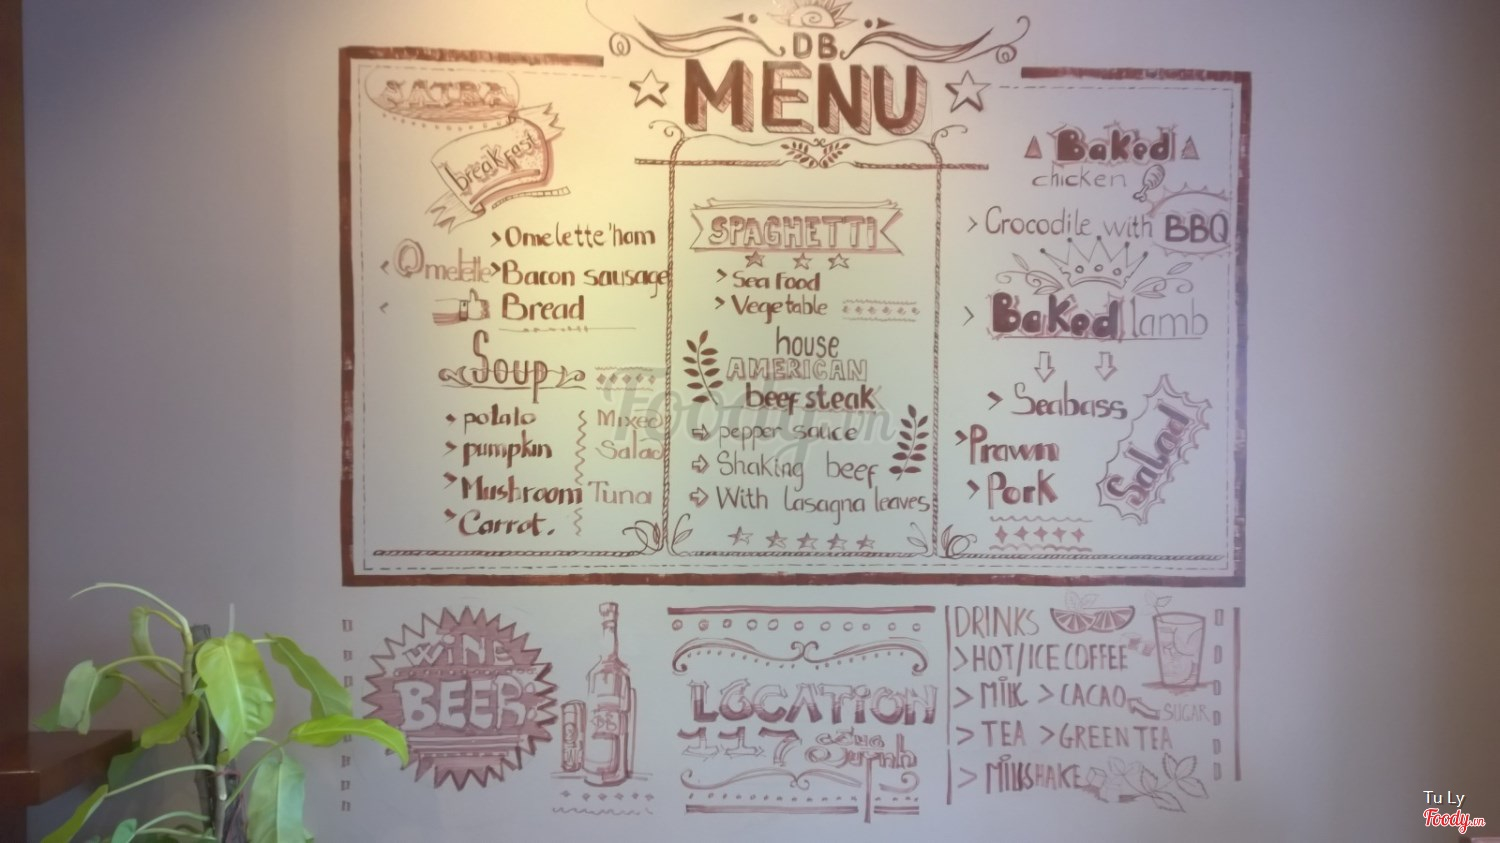 DB
MENU
SATRA
breakfast
Omelette 'ham
Omelette
Bacon sausage
Bread
Soup
potato
pumpkin
Mushroom
Carrot.
Mixed
Salad
Tuna
SPAGHETTi
Sea food
Vegetable
house
AMERICAN
beef steak
pepper sauce
Shaking beef
With lasagna leaves
Baked
chicken
Crocodile with BBQ
Baked lamb
Seabass
Prawn
Pork
Salad
WiNE
BEER
LOCATiON
117 Cống Quỳnh
DRINKS
> HOT/ICE COFFEE
> MilK > CACAO
SUGAR
> TEA > GREEN TEA
> MilKSHAKE
Foody.vn
Tu Ly
Foody.vn